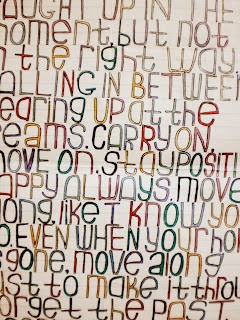 AUGHT UP IN THE
moment, but not
the right way.
ALLING IN BETWEEN
tearing up at the
seams. CARRY ON,
MOVE ON. Stay POSITI
APPY ALWAYS. MOVE
along, like I know yo
O. EVEN WHEN your ho
is gone, move along
ust to make it throu
orget the past